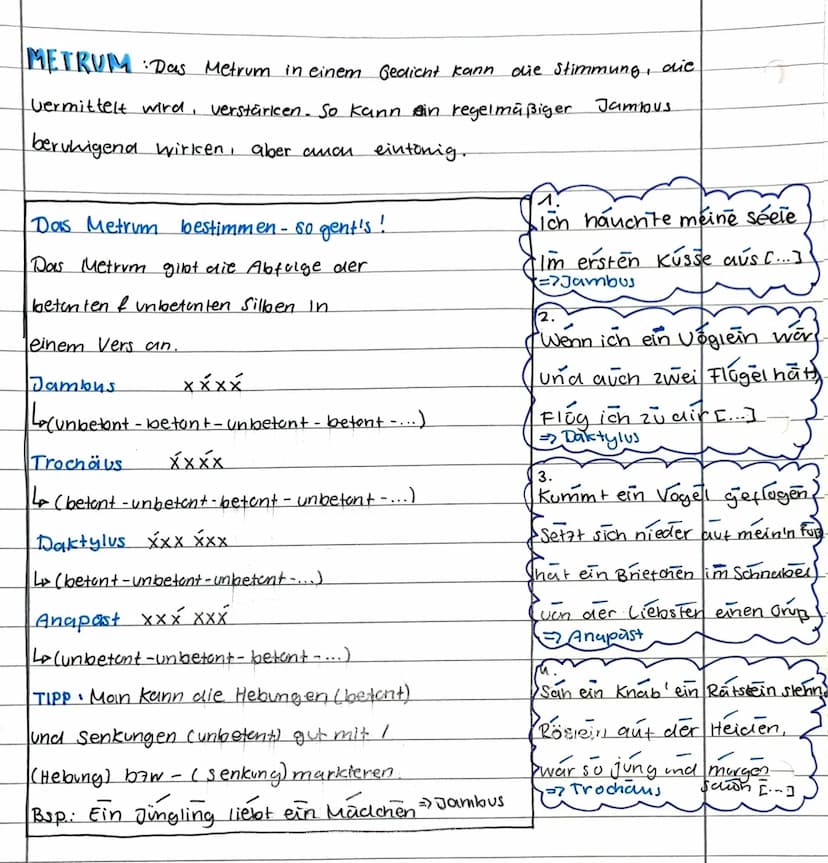 METRUM : Das Metrum in einem Gedicht kann die Stimmung, die
vermittelt wird, verstärken. So kann ein regelmäßiger Jambus
beruhigend wirken, aber auch eintönig.
Das Metrum bestimmen - so geht's!
Das Metrum gibt die Abfolge der
betonten & unbetonten Silben in
einem Vers an.
Jambus xx́xx́
↳(unbetont - betont - unbetont - betont - ...)
Trochäus x́xx́x
↳ (betont - unbetont - betont - unbetont - ...)
Daktylus x́xx x́xx
↳ (betont - unbetont - unbetont - ...)
Anapäst xxx́ xxx́
↳(unbetont - unbetont - betont - ...)
TIPP: Man kann die Hebungen (betont)
und Senkungen (unbetont) gut mit /
(Hebung) bzw - (Senkung) markieren.
Bsp.: Ein Jüngling liebt ein Mädchen => Jambus
1.
Ich hauchte meine Seele
Im ersten Küsse aus [...]
=> Jambus
2.
Wenn ich ein Vöglein wär
und auch zwei Flügel hätt,
Flög ich zu dir [...]
=> Daktylus
3.
Kummt ein Vogel geflogen
Setzt sich nieder auf mein'n Fuß
hat ein Briefchen im Schnabel
von der Liebsten einen Gruß
=> Anapäst
4.
Sah ein Knab' ein Röslein stehn,
Röslein auf der Heiden,
war so jung und morgen
schön [...]
=> Trochäus